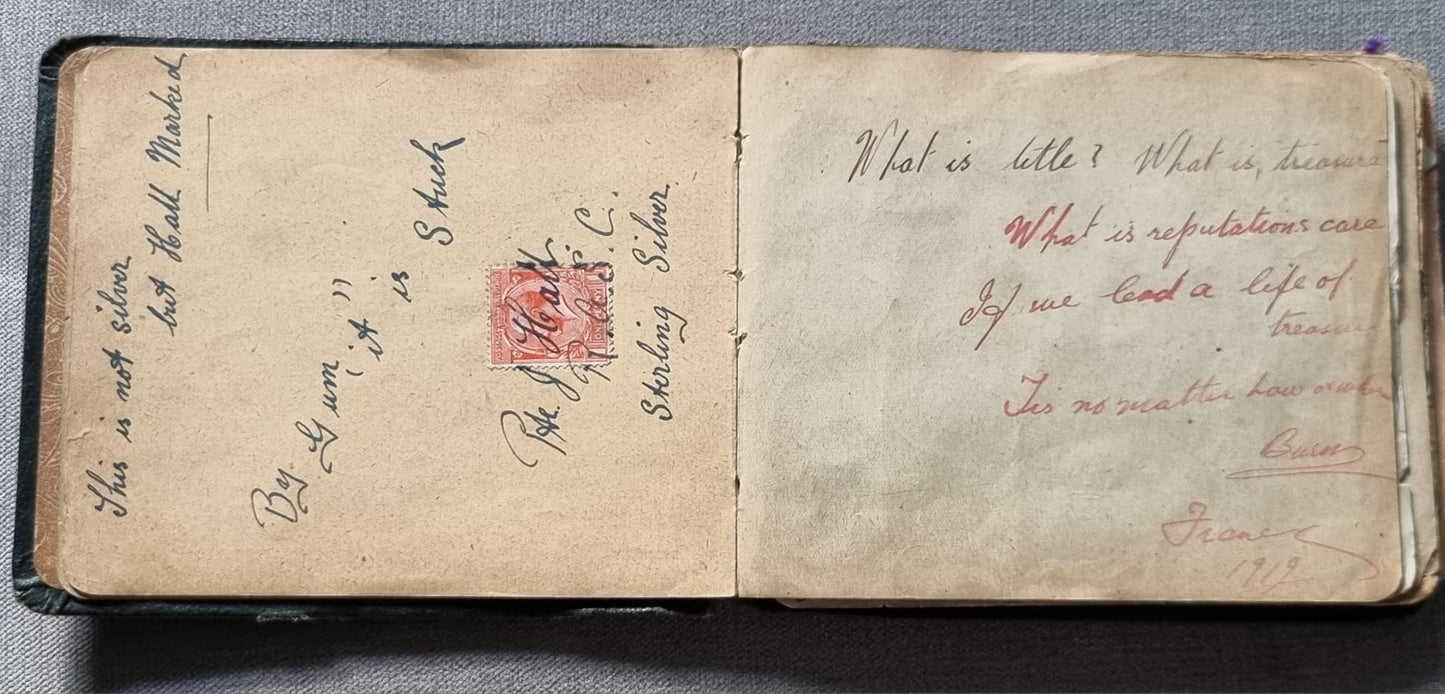 This is not silver
but Hall Marked
By. „Gum"
it
is
Stuck
Pte. J Hall
Sterling Silver
What is title? What is, treasure
What is reputations care
If we lead a life of
treasure
Tis no matter how or where
Burns
France
1919